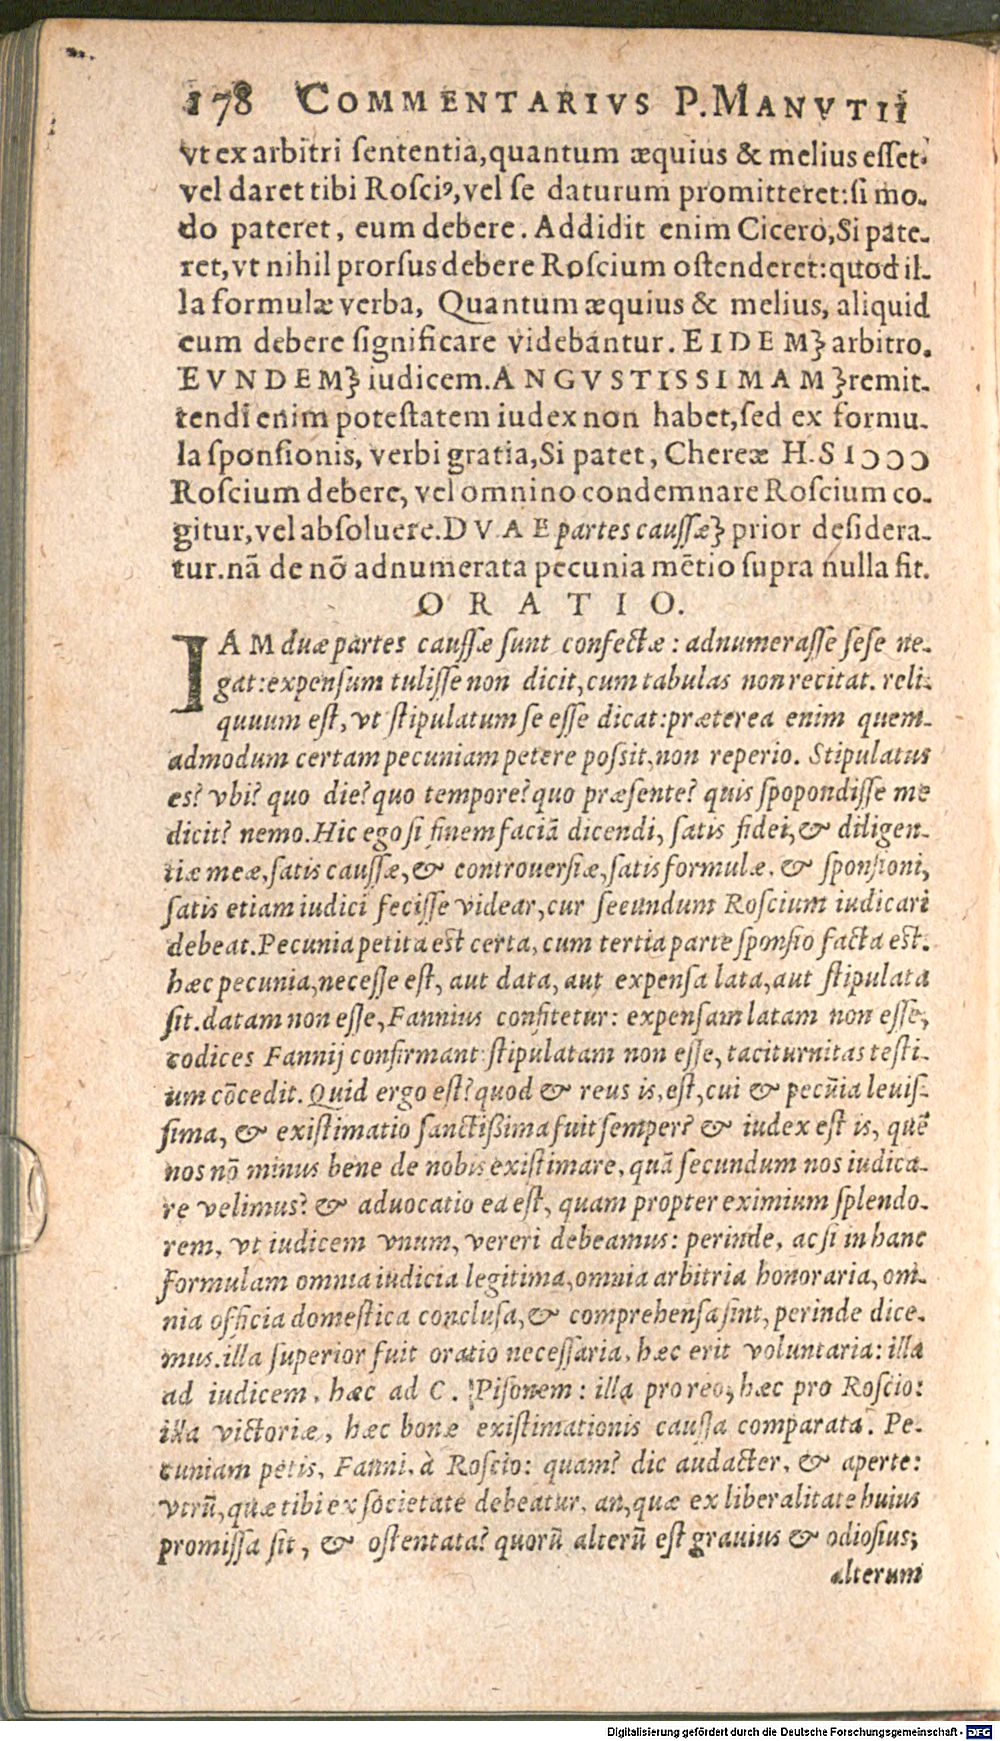 178 COMMENTARIVS P. MANVTII
vt ex arbitri ſententia, quantum æquius & melius eſſet:
vel daret tibi Roſciꝰ, vel ſe daturum promitteret: ſi mo-
do pateret, eum debere. Addidit enim Cicero, Si pate-
ret, vt nihil prorſus debere Roſcium oſtenderet: quod il-
la formulæ verba, Quantum æquius & melius, aliquid
eum debere ſignificare videbantur. EIDEM} arbitro.
EVNDEM} iudicem. ANGVSTISSIMAM} remit-
tendi enim poteſtatem iudex non habet, ſed ex formu-
la ſponſionis, verbi gratia, Si patet, Chereæ H.S IↃↃↃ
Roſcium debere, vel omnino condemnare Roſcium co-
gitur, vel abſoluere. DVAE partes cauſſæ} prior deſidera-
tur. nã de nõ adnumerata pecunia mẽtio ſupra nulla fit.
ORATIO.
IAM duæ partes cauſſæ ſunt confectæ: adnumeraſſe ſeſe ne-
gat: expenſum tuliſſe non dicit, cum tabulas non recitat. reli-
quuum eſt, vt ſtipulatum ſe eſſe dicat: præterea enim quem-
admodum certam pecuniam petere poſsit, non reperio. Stipulatus
es? vbi? quo die? quo tempore? quo præſente? quis ſpopondiſſe me
dicit? nemo. Hic ego ſi finem faciã dicendi, ſatis fidei, & diligen-
tiæ meæ, ſatis cauſſæ, & controuerſiæ, ſatis formulæ, & ſponſioni,
ſatis etiam iudici feciſſe videar, cur ſecundum Roſcium iudicari
debeat. Pecunia petita eſt certa, cum tertia parte ſponſio facta eſt.
hæc pecunia, neceſſe eſt, aut data, aut expenſa lata, aut ſtipulata
ſit. datam non eſſe, Fannius confitetur: expenſam latam non eſſe,
codices Fannij confirmant: ſtipulatam non eſſe, taciturnitas teſti-
um cõcedit. Quid ergo eſt? quod & reus is, eſt, cui & pecũia leuiſ-
ſima, & exiſtimatio ſanctiſsima fuit ſemper? & iudex eſt is, quẽ
nos nõ minus bene de nobis exiſtimare, quã ſecundum nos iudica-
re velimus? & aduocatio ea eſt, quam propter eximium ſplendo-
rem, vt iudicem vnum, vereri debeamus: perinde, ac ſi in hanc
formulam omnia iudicia legitima, omnia arbitria honoraria, om-
nia officia domeſtica concluſa, & comprehenſa ſint, perinde dice-
mus. illa ſuperior fuit oratio neceſſaria, hæc erit voluntaria: illa
ad iudicem, hæc ad C. Piſonem: illa pro reo, hæc pro Roſcio:
illa victoriæ, hæc bonæ exiſtimationis cauſſa comparata. Pe-
cuniam petis, Fanni, à Roſcio: quam? dic audacter, & aperte:
vtrũ, quæ tibi ex ſocietate debeatur, an, quæ ex liberalitate huius
promiſſa ſit, & oſtentata? quorũ alterũ eſt grauius & odioſius;
alterum
Digitalisierung gefördert durch die Deutsche Forschungsgemeinschaft - DFG